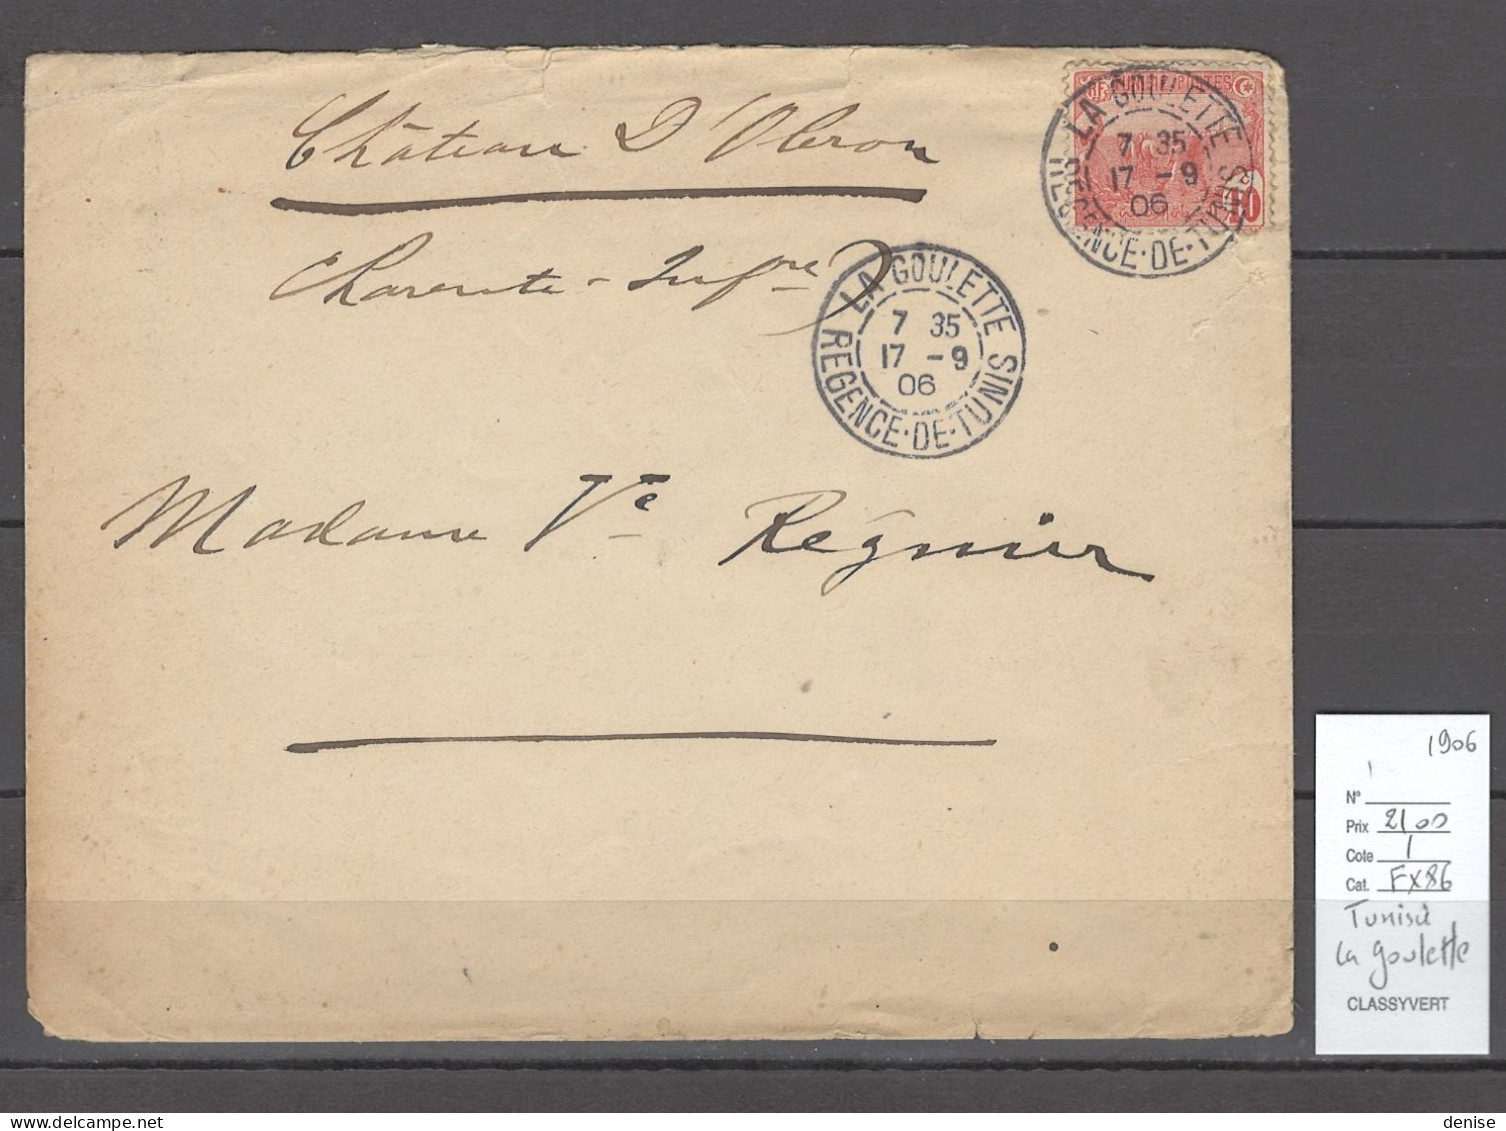 Château D'Oleron
Charente-Infre
Madame Ve Régnier
RF TUNISIE POSTES
10
LA GOULETTE
7 35
17 - 9
06
REGENCE·DE·TUNIS
LA GOULETTE
7 35
17 - 9
06
REGENCE·DE·TUNIS
1906
N°
Prix 21 00
Cote /
Cat. FX86
Tunisie
La Goulette
CLASSYVERT
denise